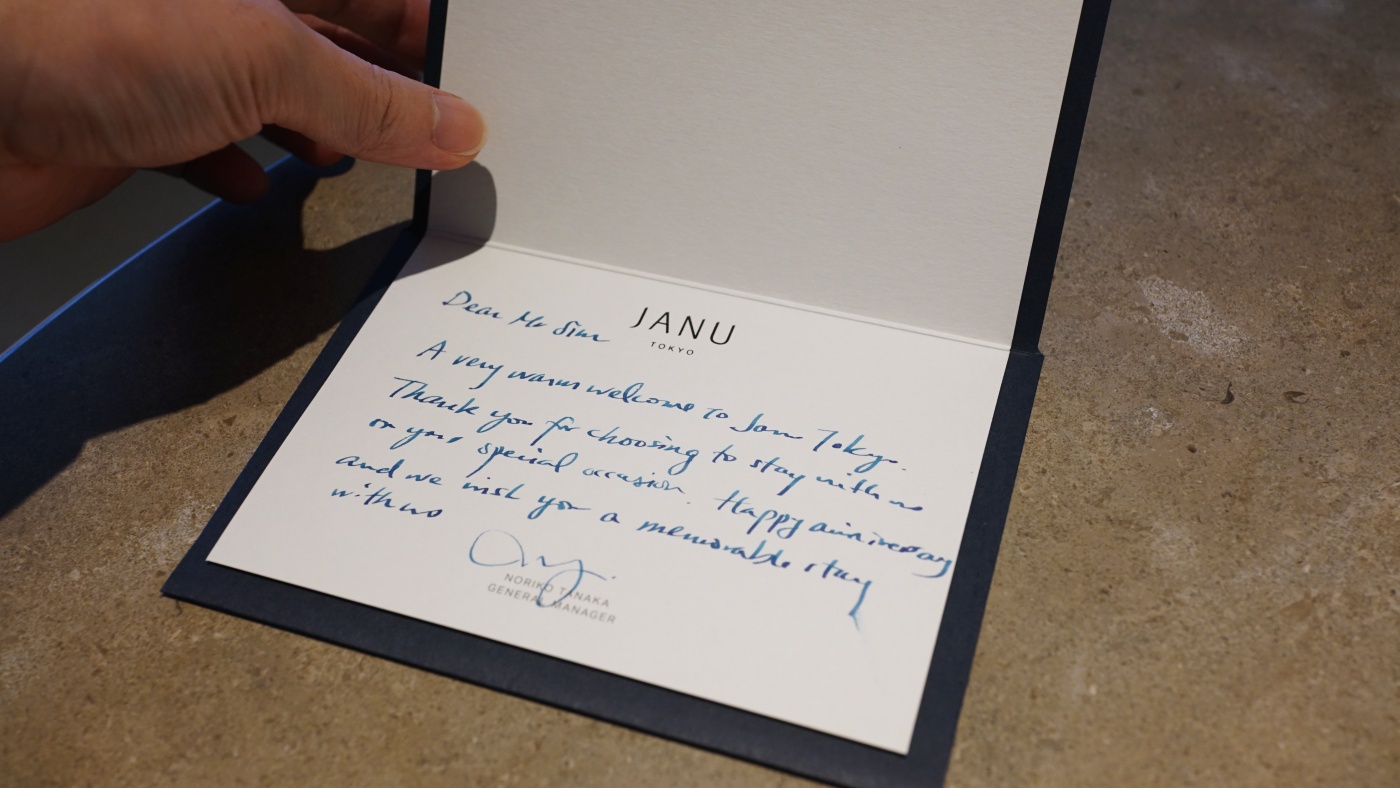 JANU
TOKYO
Dear Mr Sim
A very warm welcome to Janu Tokyo.
Thank you for choosing to stay with us
on your special occasion. Happy anniversary
and we wish you a memorable stay
with us
NORIKO TANAKA
GENERAL MANAGER